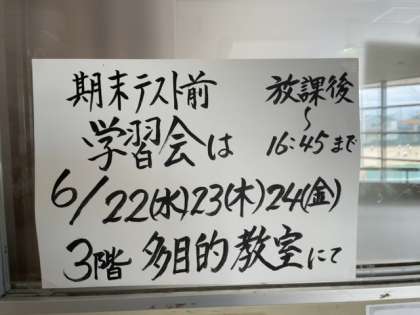 期末テスト前 放課後
学習会は ～16:45まで
6/22(水)23(木)24(金)
3階 多目的教室にて